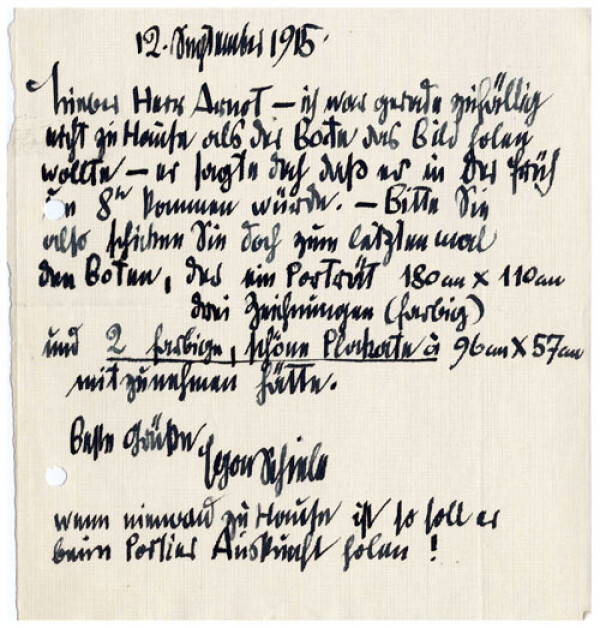 12. September 1915.
Lieber Herr Arnot – ich war gerade zufällig
nicht zu Hause als der Bote das Bild holen
wollte – er sagte doch daß er in der früh
um 8h kommen würde. – Bitte Sie
also schicken Sie doch zum letzten mal
den Boten, der ein Porträt 180 cm × 110 cm
drei Zeichnungen (farbig)
und 2 farbige, schöne Plakate à 96 cm × 57 cm
mitzunehmen hätte.
Beste Grüße
Egon Schiele
wenn niemand zu Hause ist so soll er
beim Portier Auskunft holen !